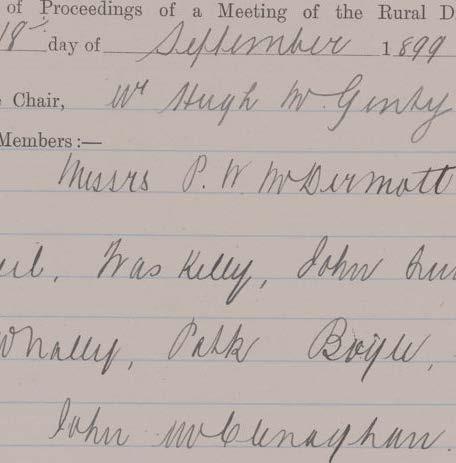 of Proceedings of a Meeting of the Rural D
18 day of September 1899
Chair, Mr Hugh McGinty
Members:—
Messrs P. W McDermott
Kelly, John
Whally, Patk Boyle,
John McClenaghan.